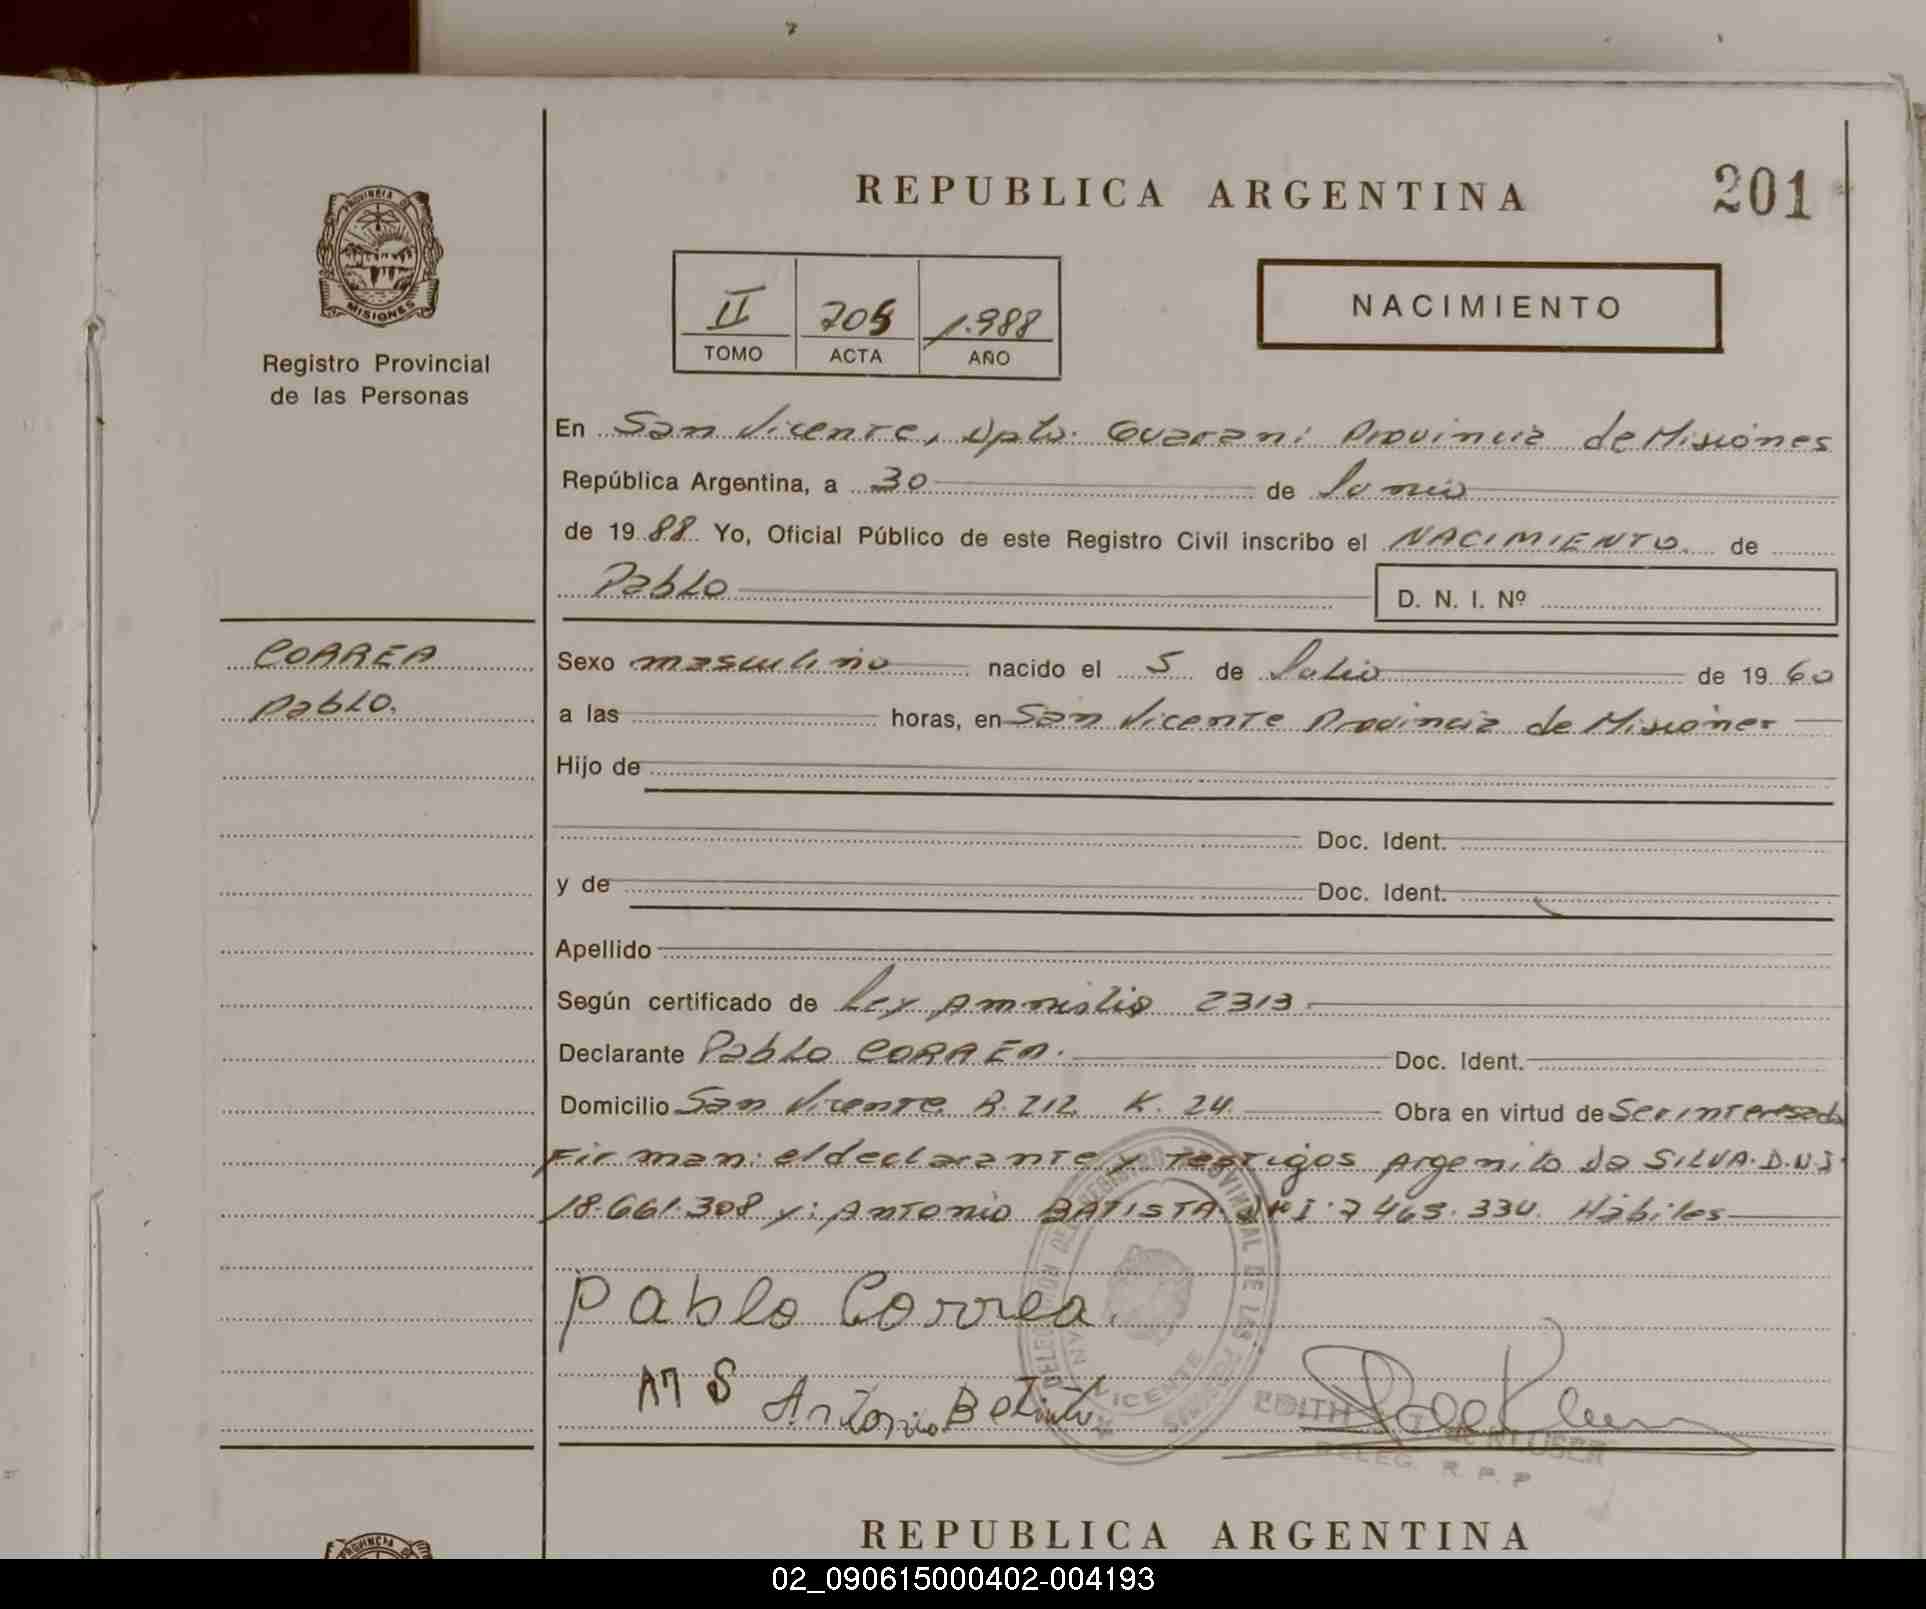 REPUBLICA ARGENTINA
201
PROVINCIA DE
MISIONES
Registro Provincial
de las Personas
II 1.988
TOMO ACTA AÑO
NACIMIENTO
En San Vicente, Dpto. Guarani Provincia de Misiones
República Argentina, a 30 de Junio
de 1988 Yo, Oficial Público de este Registro Civil inscribo el NACIMIENTO de
Pablo D. N. I. Nº
CORREA
Pablo.
Sexo masculino nacido el 5 de Julio de 1960
a las horas, en San Vicente Provincia de Misiones
Hijo de
Doc. Ident.
y de Doc. Ident.
Apellido
Según certificado de Ley Amnistia 2313
Declarante Pablo CORREA. Doc. Ident.
Domicilio San Vicente R. 212 K. 24. Obra en virtud de Ser interesado
Firman: el declarante y Testigos Argenito Da SILVA. D.N.I.
18.661.308 y: Antonio BATISTA DNI: 7 463.334. Hábiles
Pablo Correa.
Antonio
VICENTE
EDITH
DELEG. R. P. P
REPUBLICA ARGENTINA
PROVINCIA DE
02_090615000402-004193